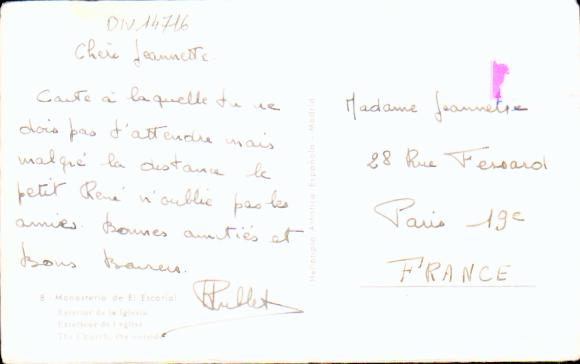 DIV 14716
Chère Jeannette
Carte à laquelle tu ne
dois pas t'attendre mais
malgré la distance le
petit René n'oublie pas les
amies. Bonnes amitiés et
Bons Baisers.
8 - Monasterio de El Escorial
Exterior de la Iglesia
Exterieur de l'eglise
The Church, the outside
Heliotipia Artística Española - Madrid
Madame Jeannette
28 Rue Fessard
Paris 19e
FRANCE